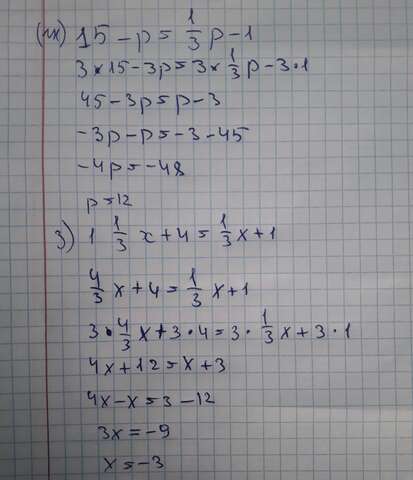 ж) 15 - p = 1/3 p - 1
3 × 15 - 3p = 3 × 1/3 p - 3 · 1
45 - 3p = p - 3
-3p - p = -3 - 45
-4p = -48
p = 12
з) 1 1/3 x + 4 = 1/3 x + 1
4/3 x + 4 = 1/3 x + 1
3 · 4/3 x + 3 · 4 = 3 · 1/3 x + 3 · 1
4x + 12 = x + 3
4x - x = 3 - 12
3x = -9
x = -3